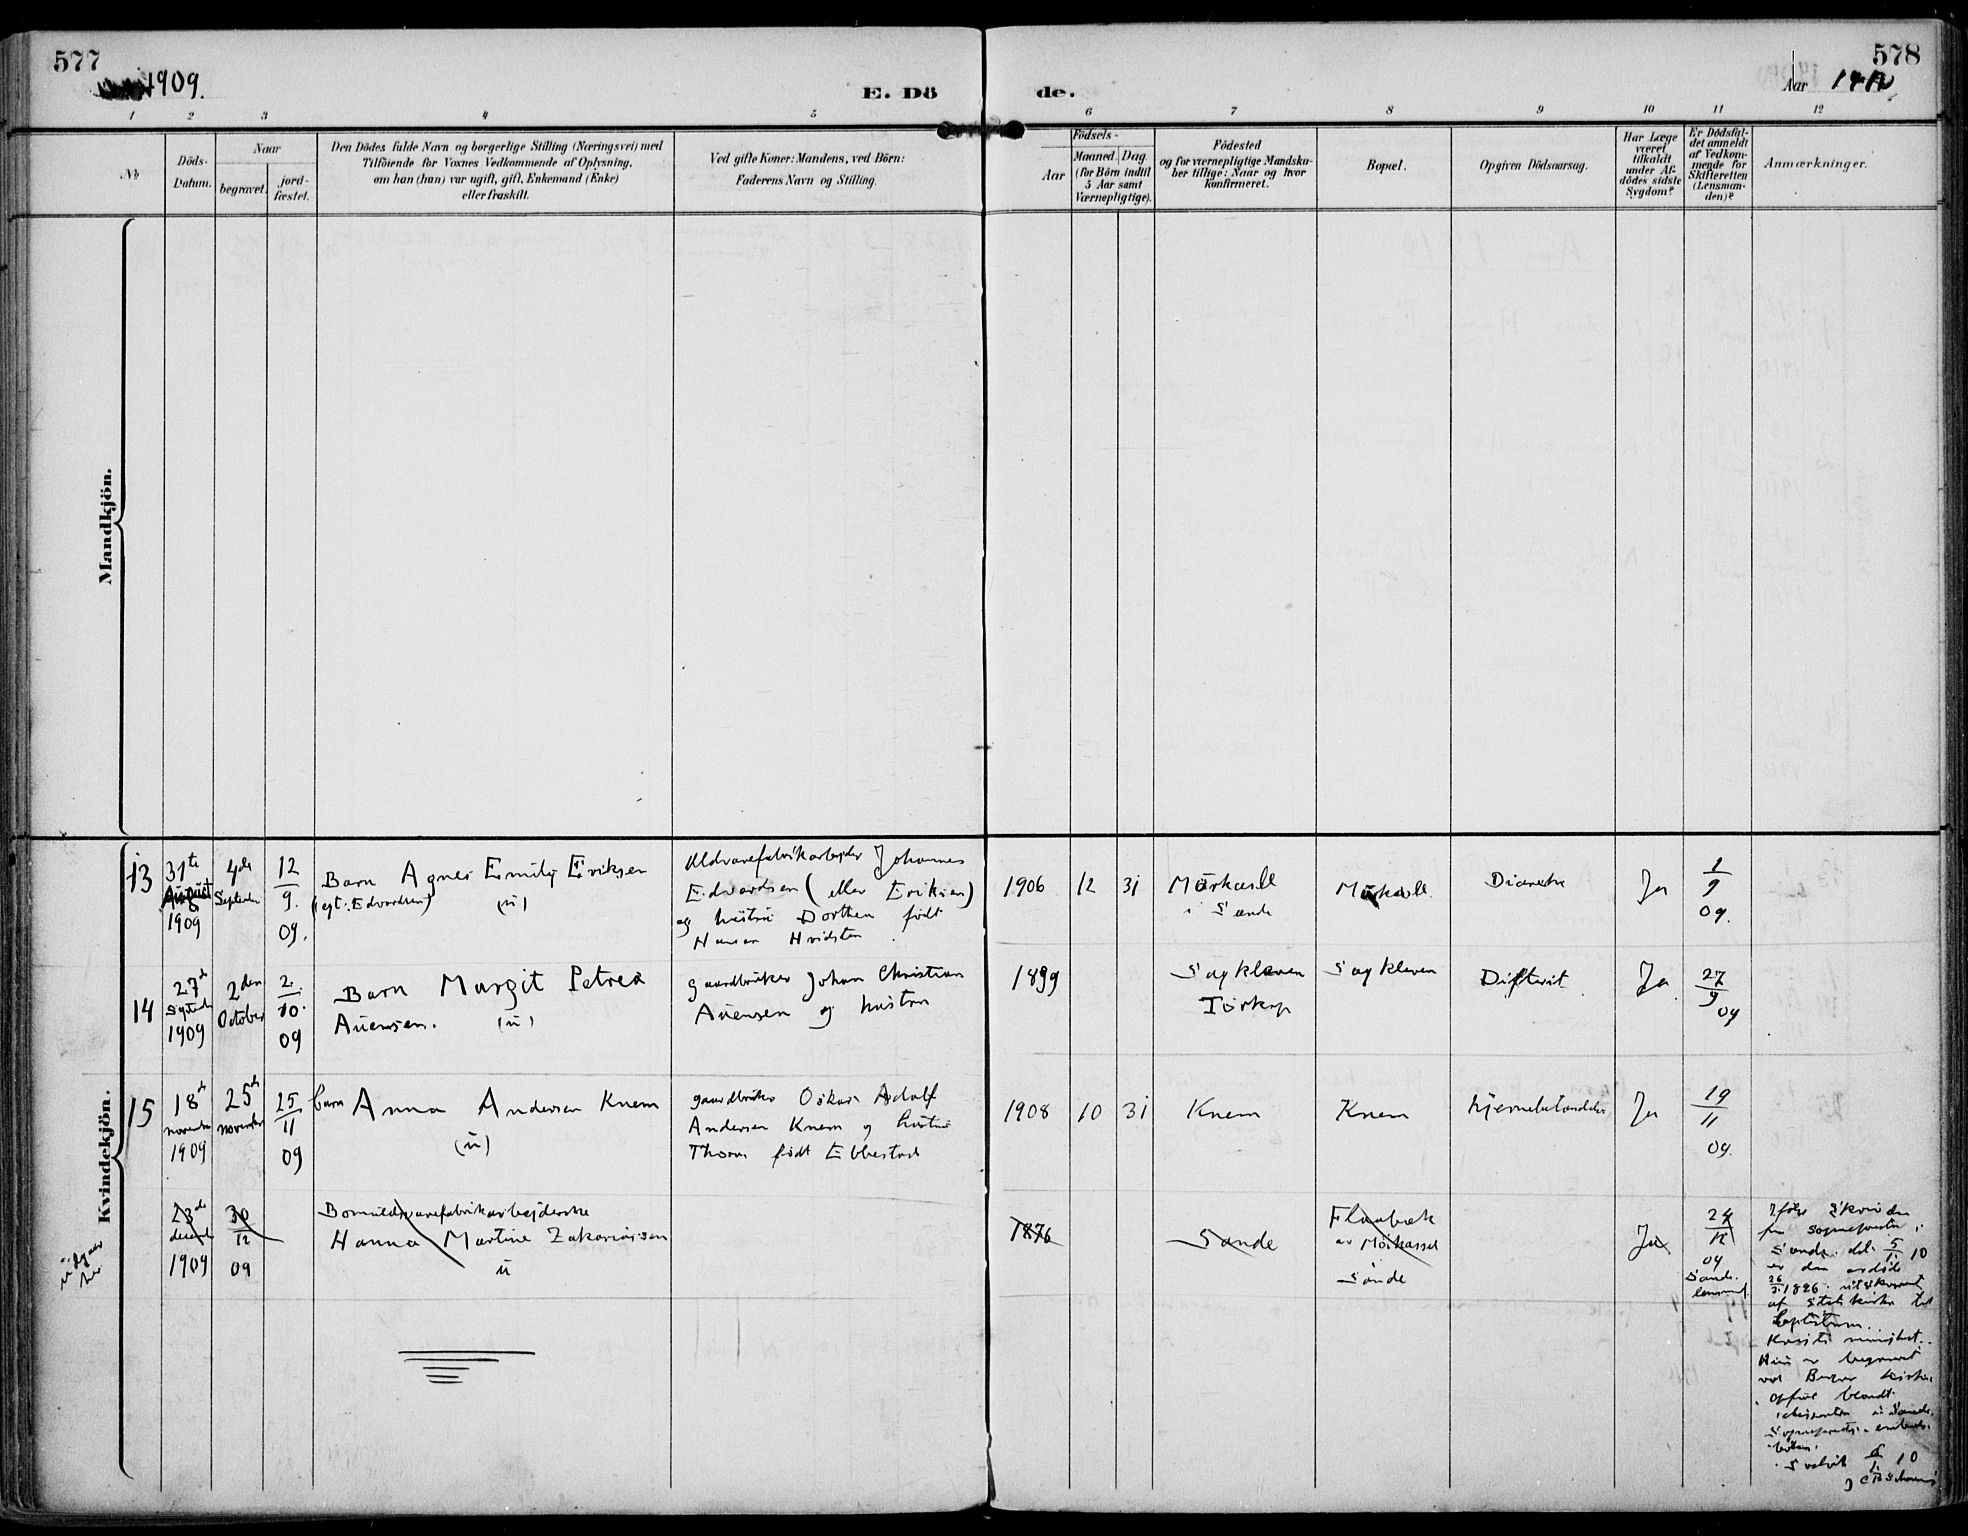 577
1909.
E. Dö
de.
578
Aar
1 2 3 4 5 6 7 8 9 10 11 12
No
Döds-
Datum.
Naar
begravet.
jord-
fæstet.
Den Dödes fulde Navn og borgerlige Stilling (Næringsvei) med
Tilföiende for Voxnes Vedkommende af Oplysning,
om han (hun) var ugift, gift, Enkemand (Enke)
eller fraskilt.
Ved gifte Koner: Mandens, ved Börn:
Faderens Navn og Stilling.
Födsels-
Aar
Maaned. Dag
(for Börn indtil
5 Aar samt
Værnepligtige).
Födested
og for værnepligtige Mandska-
ber tillige: Naar og hvor
konfirmeret.
Bopæl.
Opgiven Dödsaarsag.
Har Læge
været
tilkaldt
under Af-
dödes sidste
Sygdom?
Er Dödsfal-
det anmeldt
af Vedkom-
mende for
Skifteretten
(Lensman-
den)?
Anmærkninger.
Mandkjön.
Kvindekjön.
13
31te
August
1909
4de
September
12
9.
09.
Barn Agnes Emily Eriksen
(egt: Edvardsen) (u)
Uldvarefabrikarbejder Johannes
Edvardsen (eller Eriksen)
og hustru Dorthea født
Hansen Hvidsten
1906 12 31
Mörkasll
i Sande
Ja
1
9
09.
14
27de
Septemb
1909
2den
October
2.
10.
09
Barn Margit Petrea
Auensen. (u)
gaardbruker Johan Christian
Auensen og hustru
1899
Sagkleven
Torkop
Sagkleven
Difterit
Ja
27
9
09
15
18de
november
1909
25de
november
25
11
09
barn Anna Andersen Knem
(u)
gaardbruker Oskar Adolf
Andersen Knem og hustru
Thora født Ebbestad
1908 10 31
Knem
Knem
hjernebetændelse
Ja
19
11
09.
23de
decemb
1909
30
12
09
Bomuldsvarefabrikarbejderske
Hanna Martine Zakariassen
u
1876
Sande
av Mörkassel
Sande
Ja
24
12
09
Sande
lensmd.
Ifølge Skrivelse
fra sogneprest i
Sande dat. 5/1 10
er den avdöde
af Statskirke til
Hun er begravet
Selvik 6/1 10
utgaar
her